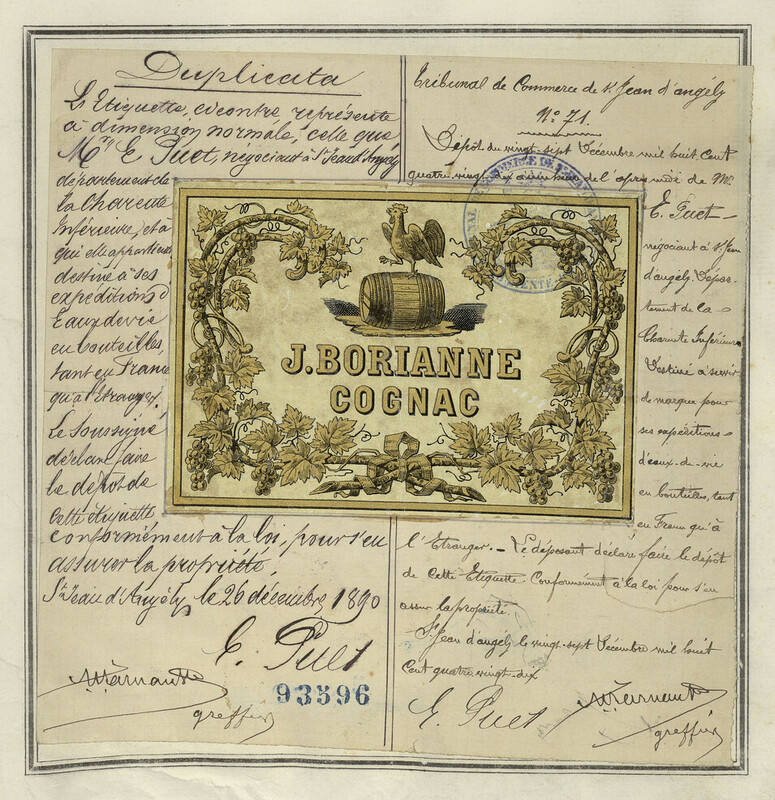 Duplicata
L'Etiquette, ci contre, représente
à dimension normale, celle que
Mr E Puet, négociant à St Jean d'Angély
département de
la Charente
Inférieure, et à
qui elle appartient
destiné à ses
expéditions d'
Eaux de vie
en bouteilles,
tant en France
qu'à l'Etranger.
Le Soussigné
déclare faire
le dépôt de
cette étiquette
conformément à la loi, pour s'en
assurer la propriété.
St Jean d'Angély, le 26 décembre 1890
E. Puet
greffier
93596
J. BORIANNE
COGNAC
Tribunal de Commerce de St Jean d'angély
No 71.
Dépôt du vingt-sept Décembre mil huit cent
quatre vingt dix à une heure de l'après midi de Mr
E. Puet
négociant à St Jean
d'angély. Dépar-
tement de la
Charente Inférieure
Destiné à servir
de marque pour
ses expéditions
d'eaux-de-vie
en bouteilles, tant
en France qu'à
l'Etranger. - Le déposant déclare faire le dépôt
de cette Etiquette Conformément à la loi pour s'en
assurer la propriété.
St Jean d'angély le vingt-sept Décembre mil huit
cent quatre vingt-dix
E. Puet
greffier